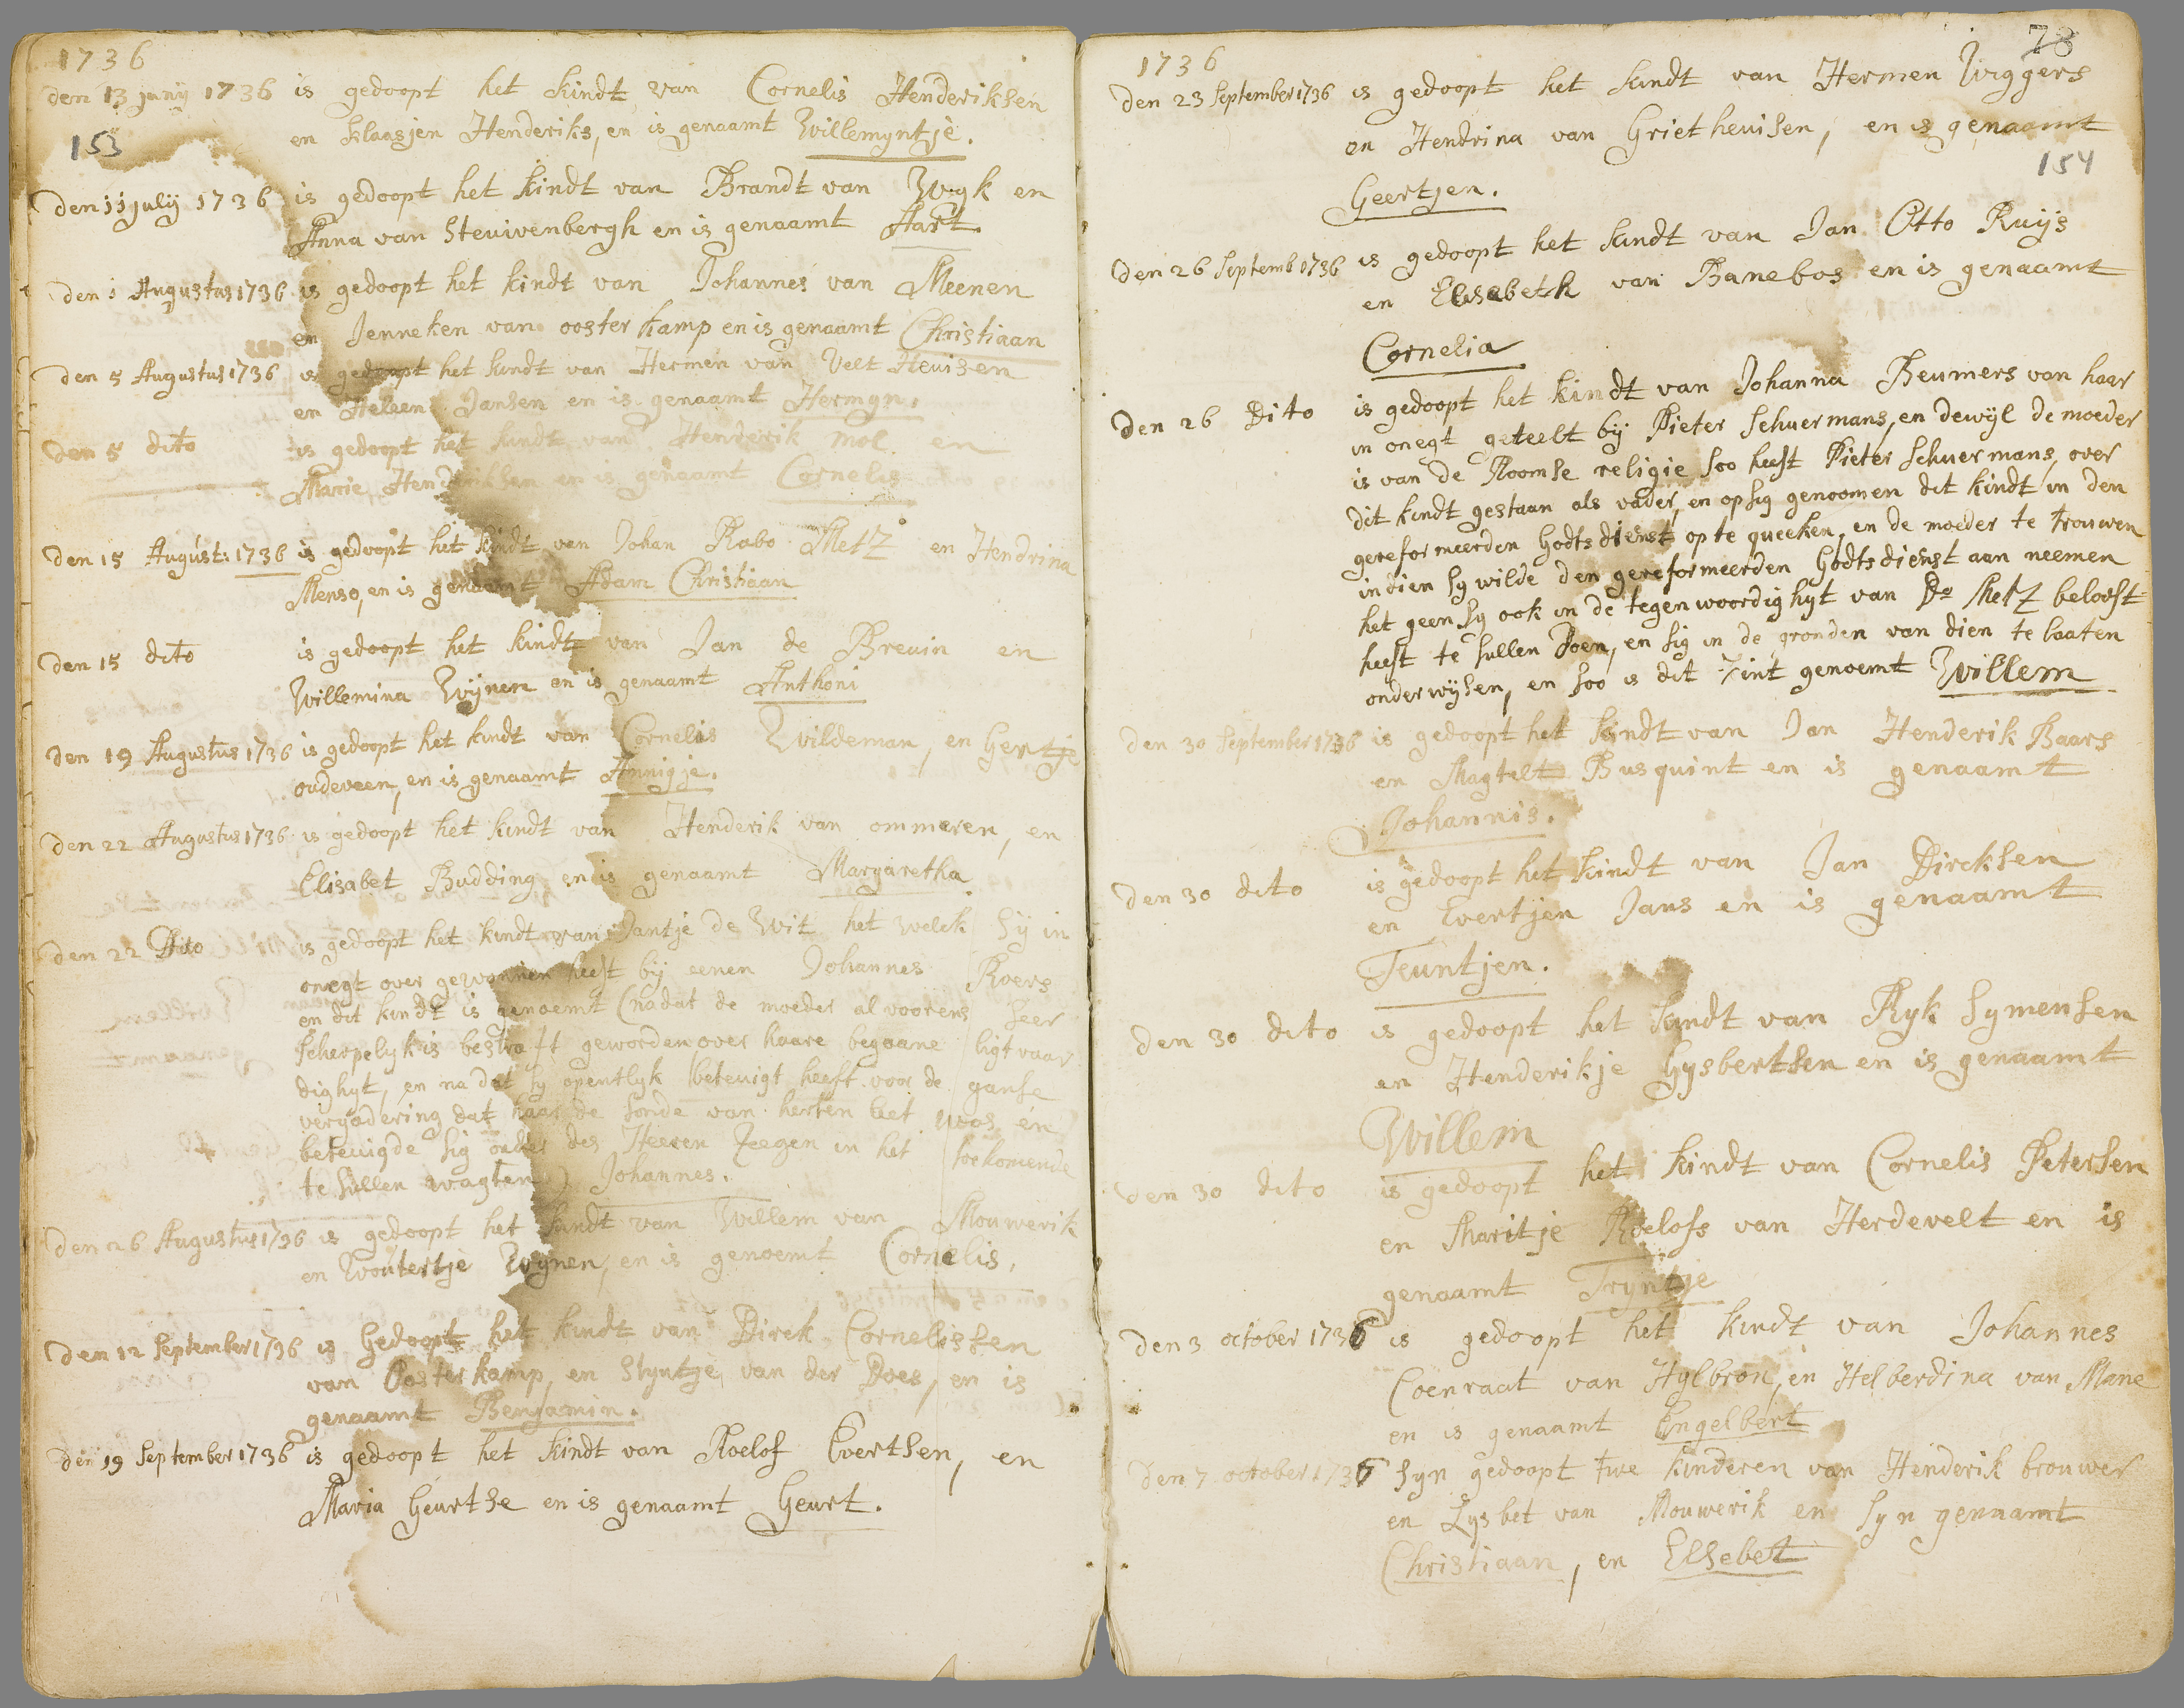 1736
den 13 juny 1736 is gedoopt het kindt van Cornelis Henderiksen
en klaasjen Henderiks, en is genaamt Willemyntje.
153
den 11 july 1736 is gedoopt het kindt van Brandt van Wyk en
Anna van Steuivenbergh en is genaamt Aart.
den 1 Augustus 1736 is gedoopt het kindt van Johannes van Meenen
en Jenneken van oosterkamp en is genaamt Christiaan
den 5 Augustus 1736 is gedoopt het kindt van Hermen van Velt Heuisen
en Heleen Jansen en is genaamt Hermyn.
den 5 dito is gedoopt het kindt van Henderik mol en
Marie Henderiksen en is genaamt Cornelis
den 15 August: 1736 is gedoopt het kindt van Johan Rabo Metz en Hendrina
Menso, en is genaamt Adam Christiaan
den 15 dito is gedoopt het kindt van Jan de Breuin en
Willemina Wijnen en is genaamt Anthoni
den 19 Augustus 1736 is gedoopt het kindt van Cornelis Wildeman, en Gertje
oudeveen, en is genaamt Annigje.
den 22 Augustus 1736 is gedoopt het kindt van Henderik van ommeren, en
Elisabet Budding en is genaamt Margaretha
den 22 Dito is gedoopt het kindt van Jantje de Wit het welck sy in
onegt over gewonnen heeft bij eenen Johannes Roers
en dit kindt is genoemt (nadat de moeder al voorens seer
scherpelyk is bestraft geworden over haare begaane ligtvaar
dighyt, en na dat sy opentlyk betevigt heeft voor de ganse
vergadering dat haar de sonde van herten leet was, en
betevigde sig onder des Heeren Zeegen in het forkomende
te sullen wagten) Johannes.
den 26 Augustus 1736 is gedoopt het kindt van Willem van Mouwerik
en Woutertje Wynen, en is genoemt Cornelis,
den 12 September 1736 is Gedoopt het kindt van Dirck Cornelissen
van Oosterkamp, en Styntje van der Does, en is
genaamt Benjamin.
den 19 September 1736 is gedoopt het kindt van Roelof Evertsen, en
Maria Geurtse en is genaamt Geurt.
78
1736
den 23 September 1736 is gedoopt het kindt van Hermen Wiggers
en Hendrina van Griethevisen, en is genaamt
154
Geertjen.
den 26 Septemb 1736 is gedoopt het kindt van Jan Otto Ruijs
en Elisabeth van Banebos en is genaamt
Cornelia
den 26 Dito is gedoopt het kindt van Johanna Beumers van haar
in onegt geteelt bij Pieter Schuermans, en dewyl de moeder
is van de Roomse religie soo heeft Pieter Schuermans, over
dit kindt gestaan als vader, en op sig genoomen dit kindt in den
gereformeerden Godtsdienst op te queeken, en de moeder te trouwen
indien sy wilde den gereformeerden Godtsdienst aan neemen
het geen sy ook in de tegenwoordighyt van Ds Metz belooft
heeft te sullen Doen, en sig in de gronden van dien te laaten
onderwijsen, en soo is dit kint genoemt Willem
den 30 September 1736 is gedoopt het kindt van Jan Henderik Baars
en Magtelt Busquint en is genaamt
Johannis.
den 30 dito is gedoopt het kindt van Jan Dircksen
en Evertjen Jans en is genaamt
Teuntjen.
den 30 dito is gedoopt het kindt van Ryk Symensen
en Henderikje Gysbertsen en is genaamt
Willem
den 30 dito is gedoopt het kindt van Cornelis Petersen
en Maritje Roelofs van Herdevelt en is
genaamt Tryntje
den 3 october 1736 is gedoopt het kindt van Johannes
Coenraat van Hylbron, en Helberdina van Mane
en is genaamt Engelbert
den 7 october 1736 Syn gedoopt twe kinderen van Henderik brouwer
en Lysbet van Mouwerik en syn genaamt
Christiaan, en Elsebet